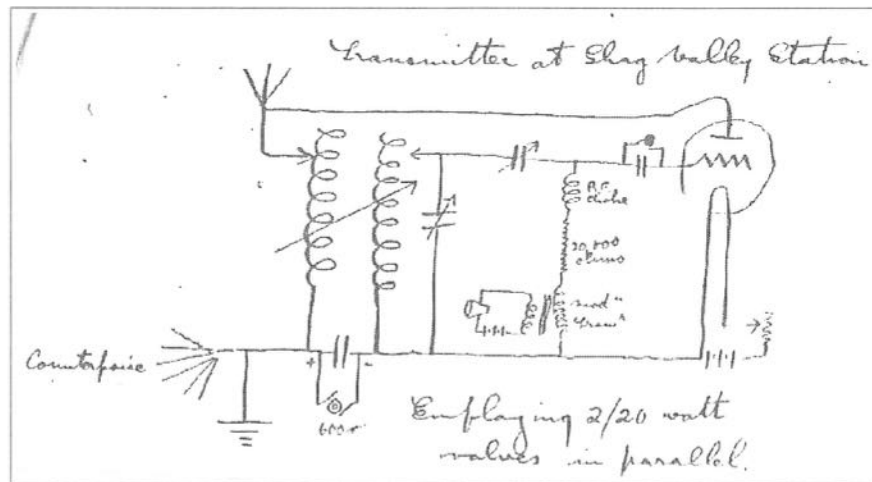 Transmitter at Shag Valley Station
R.F.
choke
20,000
ohms
mod"
Counterpoise
+ -
600v
Employing 2/20 watt
valves in parallel.